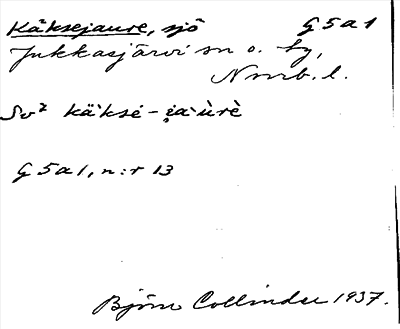 Käksejaure, sjö G5a1
Jukkasjärvi sn o. by,
Nrrb. l.
Sv² käksè-i̯a·ùrè
G5a1, n:r 13
Björn Collinder 1937.